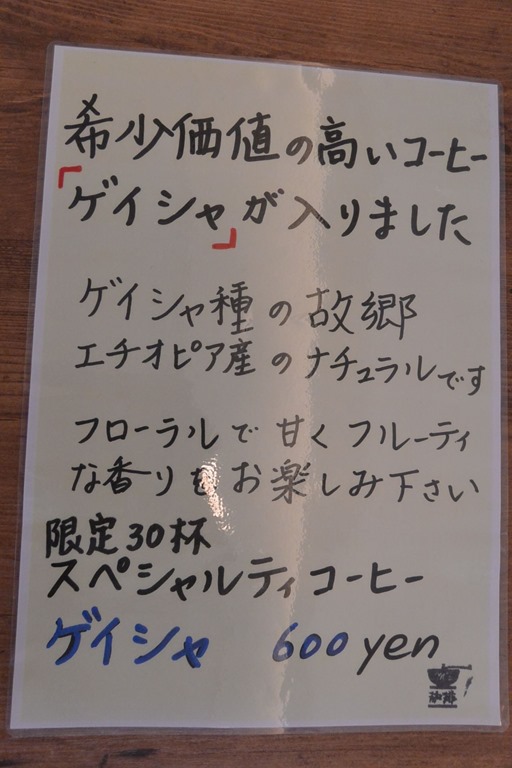 希少価値の高いコーヒー
「ゲイシャ」が入りました
ゲイシャ種の故郷
エチオピア産のナチュラルです
フローラルで甘くフルーティ
な香りをお楽しみ下さい
限定30杯
スペシャルティコーヒー
ゲイシャ 600yen
珈琲